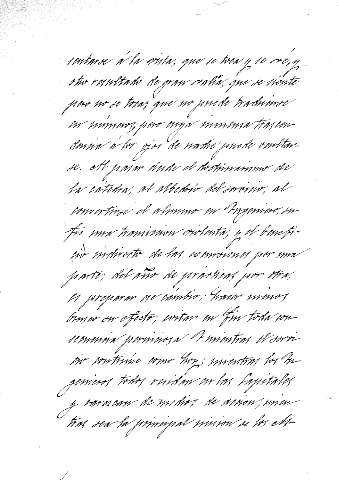 sentarse á la vista, que se vea y se oré, y
otro resultado de gran valía, que se siente
pero no se toca, que no puede traducirse
en números, pero cuya inmensa trascen
dencia á los ojos de nadie puede ocultar
se. Al pasar desde el doctrinarismo de
la cátedra, al albedrio del servicio, al
convertirse el alumno en Ingeniero, su
fre una transicion violenta, y el benefi
cio indirecto de las escursiones por una
parte, del año de prácticas por otra,
es preparar ese cambio; hacer menos
brusco su efecto, evitar en fin toda con
secuencia perniciosa. Y mientras el servi
cio continue como hoy; mientras los In
genieros todos residan en las Capitales
y carezcan de medios de accion, mien
tras sea la principal mision de los